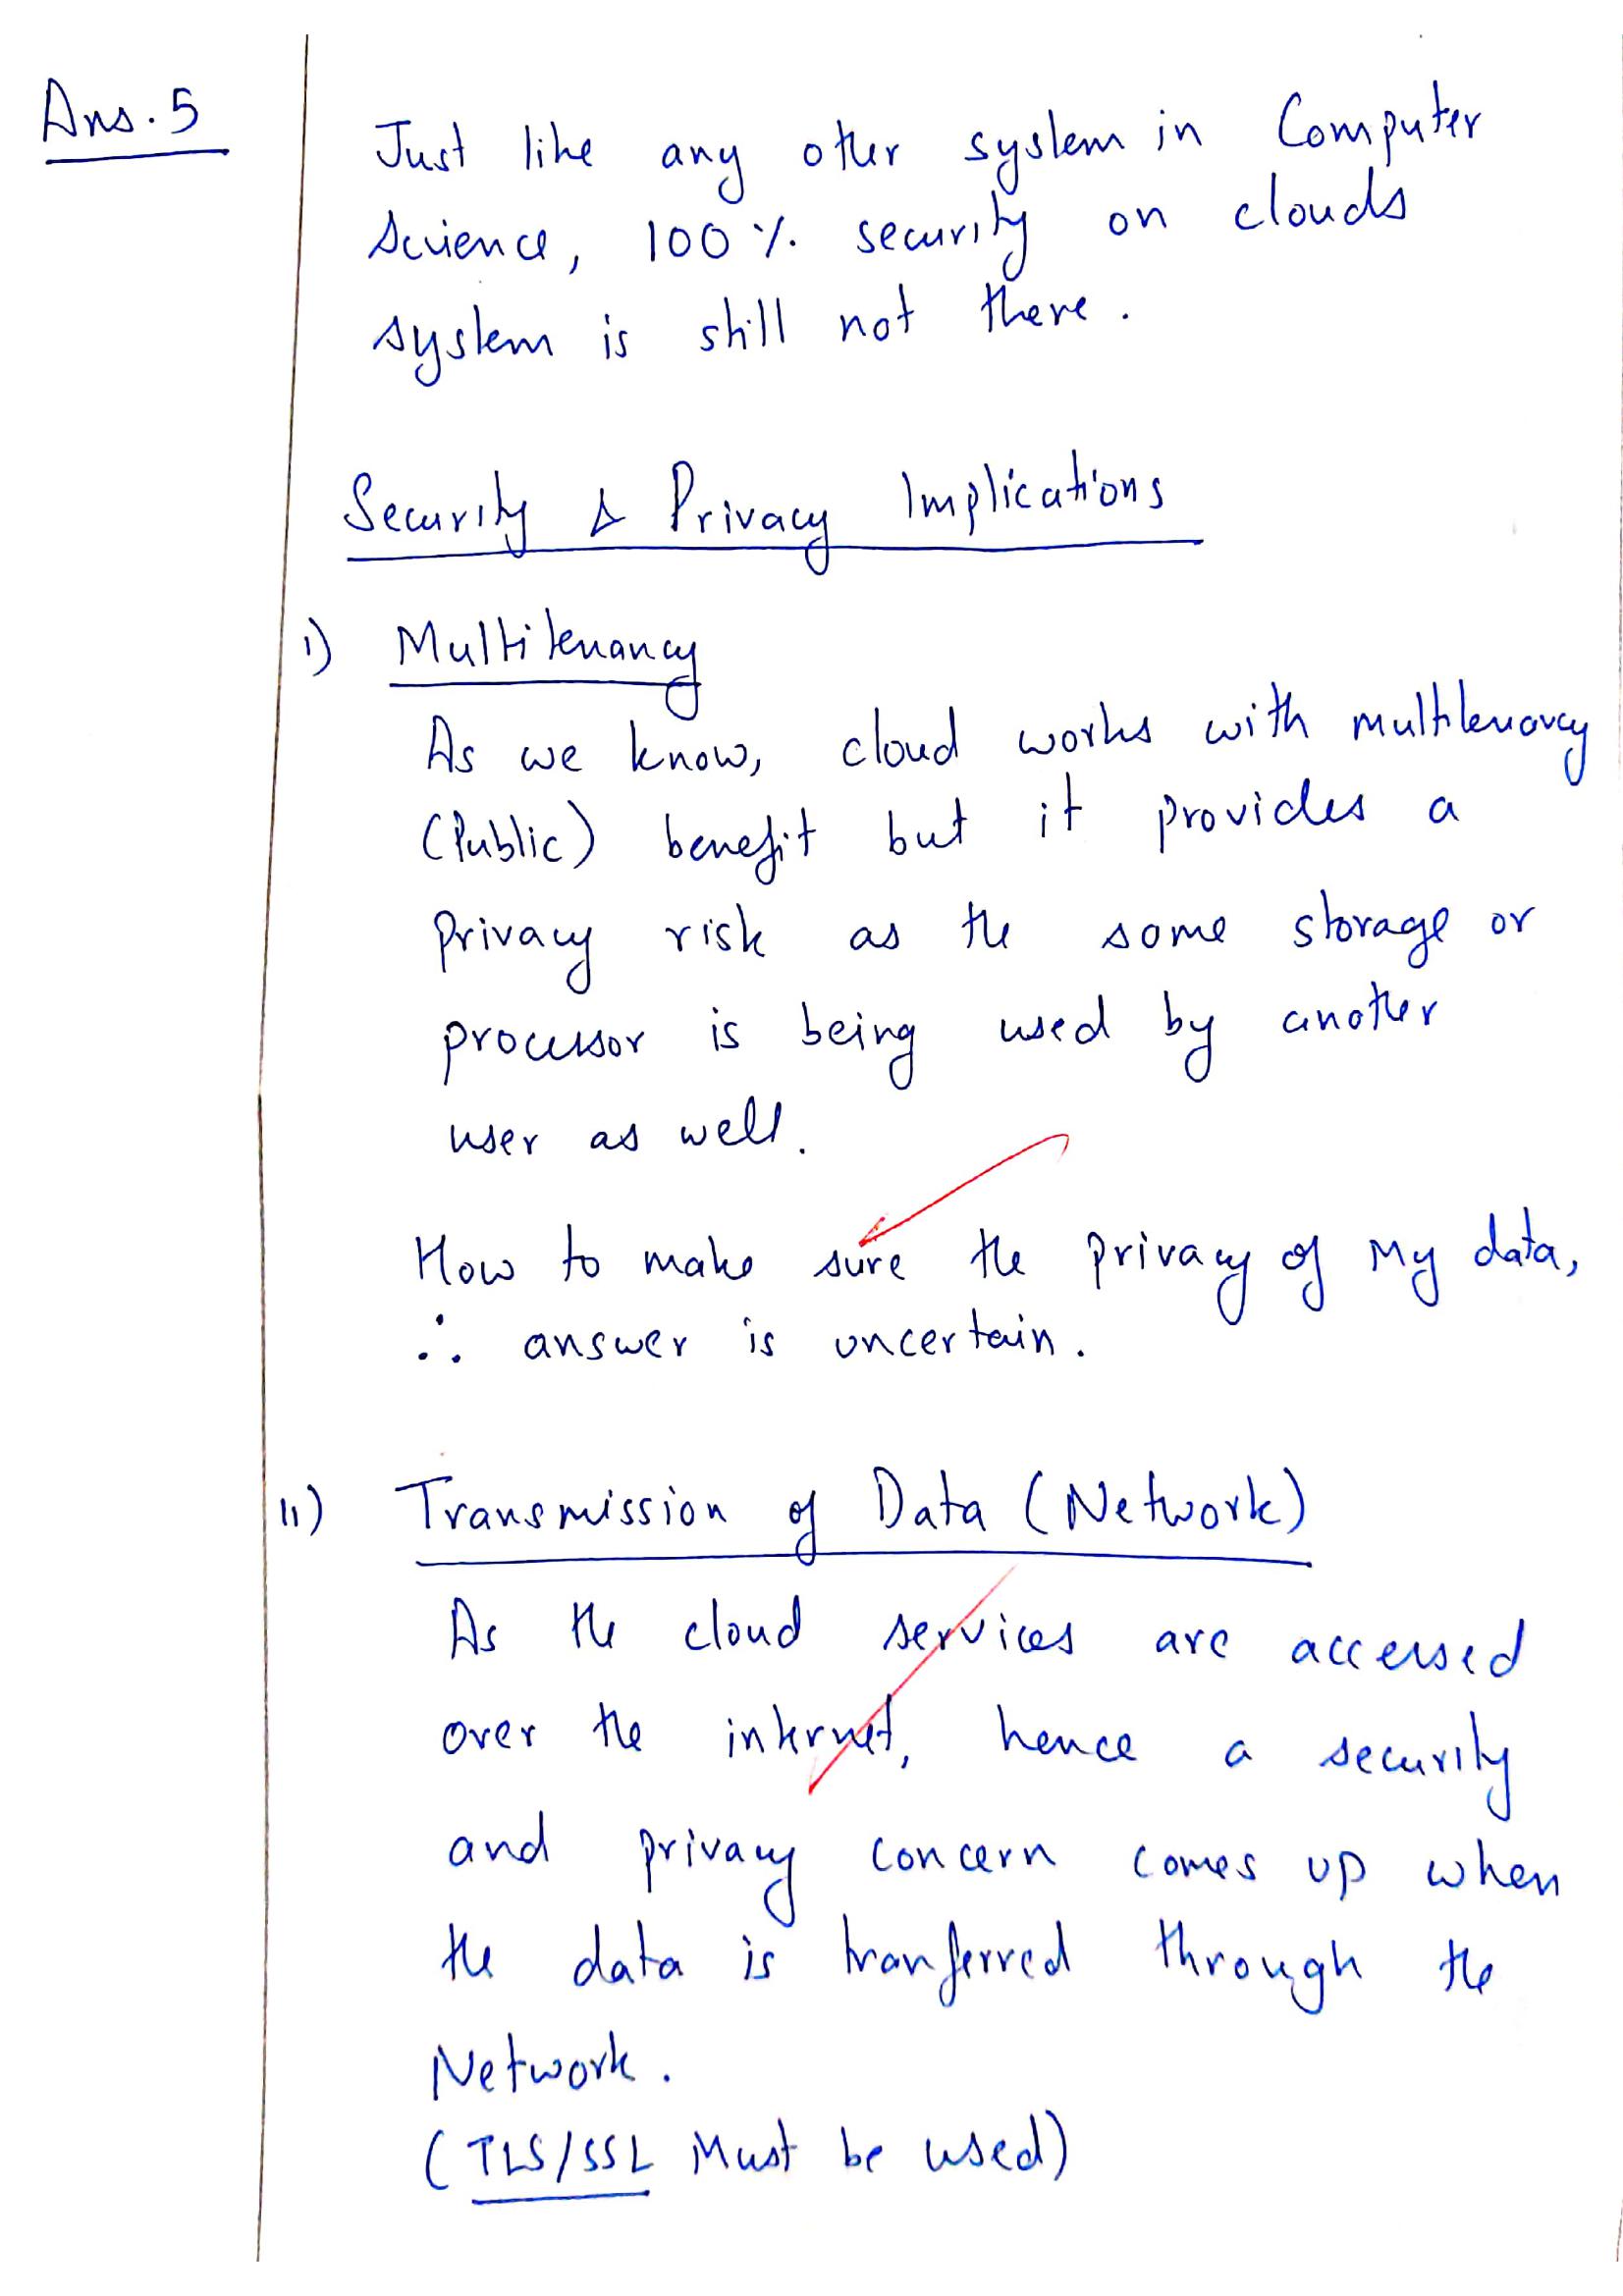 Ans. 5
Just like any other system in Computer
Science, 100 % security on clouds
system is still not there.
Security & Privacy Implications
i) Multitenancy
As we know, cloud works with multitenancy
(Public) benefit but it provides a
privacy risk as the same storage or
processor is being used by another
user as well.
How to make sure the privacy of my data,
∴ answer is uncertain.
ii) Transmission of Data (Network)
As the cloud services are accessed
over the internet, hence a security
and privacy concern comes up when
the data is tranferred through the
Network.
(TLS/SSL Must be used)